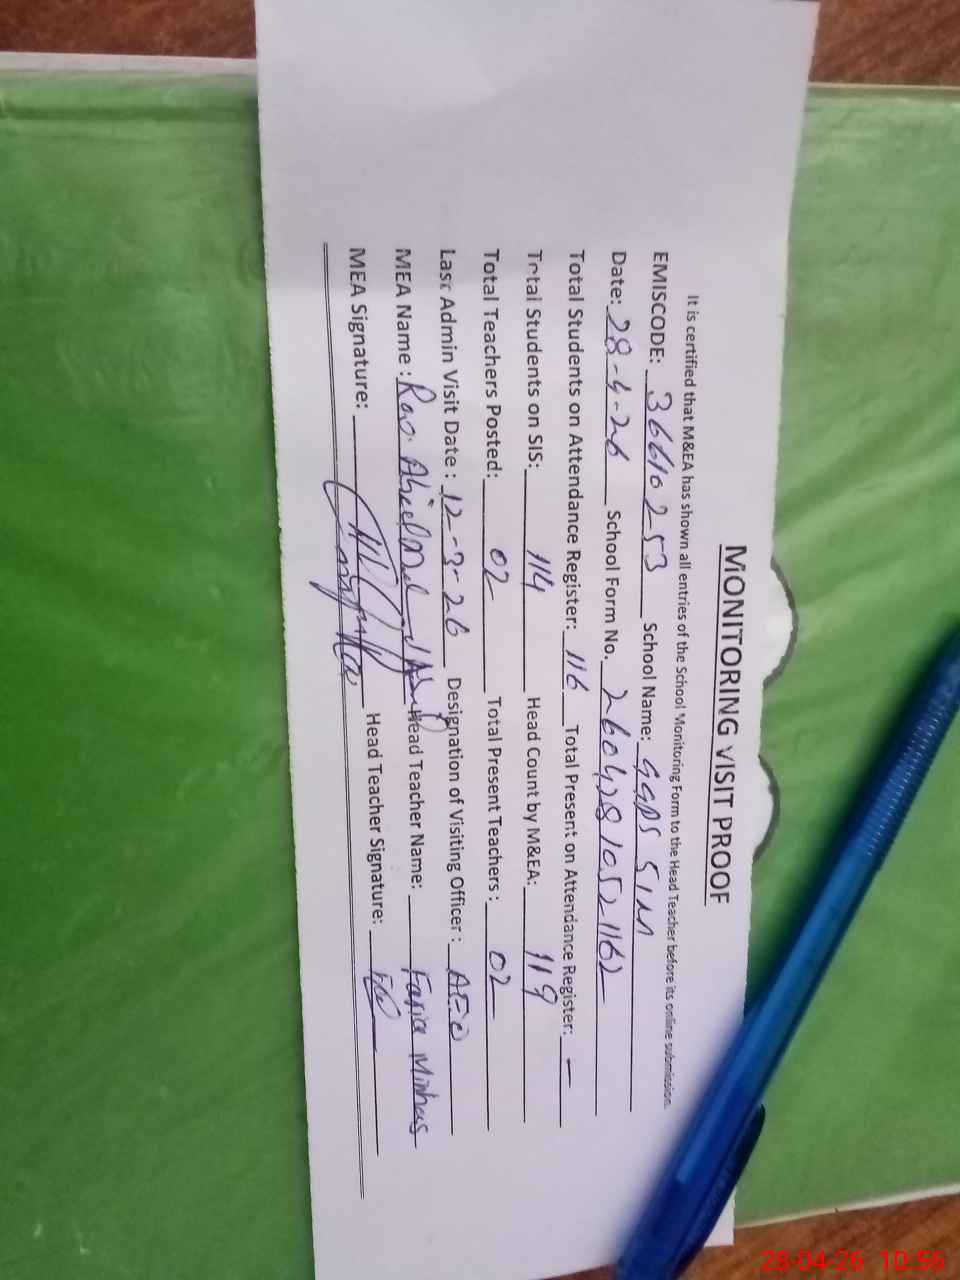 MONITORING VISIT PROOF
It is certified that M&EA has shown all entries of the School Monitoring Form to the Head Teacher before its online submission.
EMISCODE: 36610253 School Name: GGPS 51M
Date: 28-4-26 School Form No. 26042810521162
Total Students on Attendance Register: 116 Total Present on Attendance Register: —
Total Students on SIS: 114 Head Count by M&EA: 119
Total Teachers Posted: 02 Total Present Teachers: 02
Last Admin Visit Date: 12-3-26 Designation of Visiting Officer: AEO
MEA Name: Rao Head Teacher Name: Fasia Minhas
MEA Signature: Head Teacher Signature:
28-04-26 10:56